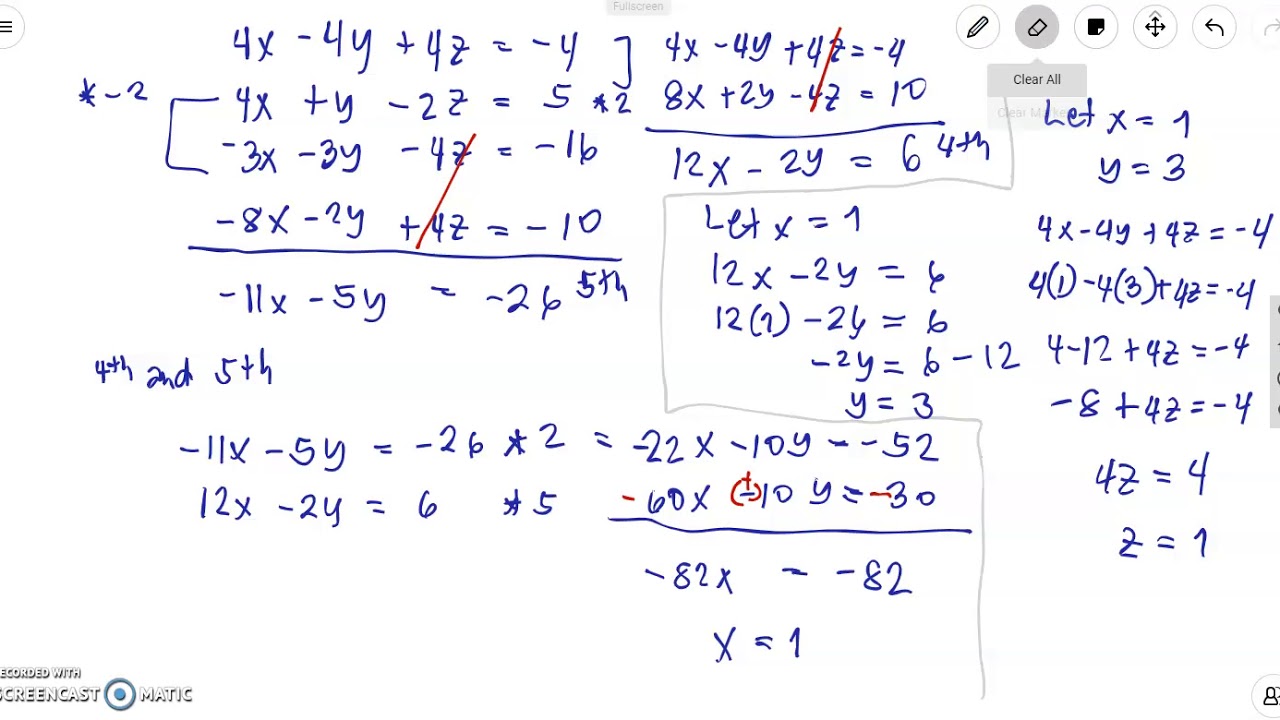 Fullscreen
4x - 4y + 4z = -4
* -2
4x + y - 2z = 5 * 2
-3x - 3y - 4z = -16
-8x - 2y + 4z = -10
-11x - 5y = -26 5th
4th and 5th
-11x - 5y = -26 * 2 = -22x - 10y = -52
12x - 2y = 6 * 5
-60x (+)10y = -30
-82x = -82
x = 1
4x - 4y + 4z = -4
8x + 2y - 4z = 10
12x - 2y = 6 4th
Let x = 1
12x - 2y = 6
12(1) - 2y = 6
-2y = 6 - 12
y = 3
Clear All
Clear Marker
Let x = 1
y = 3
4x - 4y + 4z = -4
4(1) - 4(3) + 4z = -4
4 - 12 + 4z = -4
-8 + 4z = -4
4z = 4
z = 1
RECORDED WITH
SCREENCAST MATIC